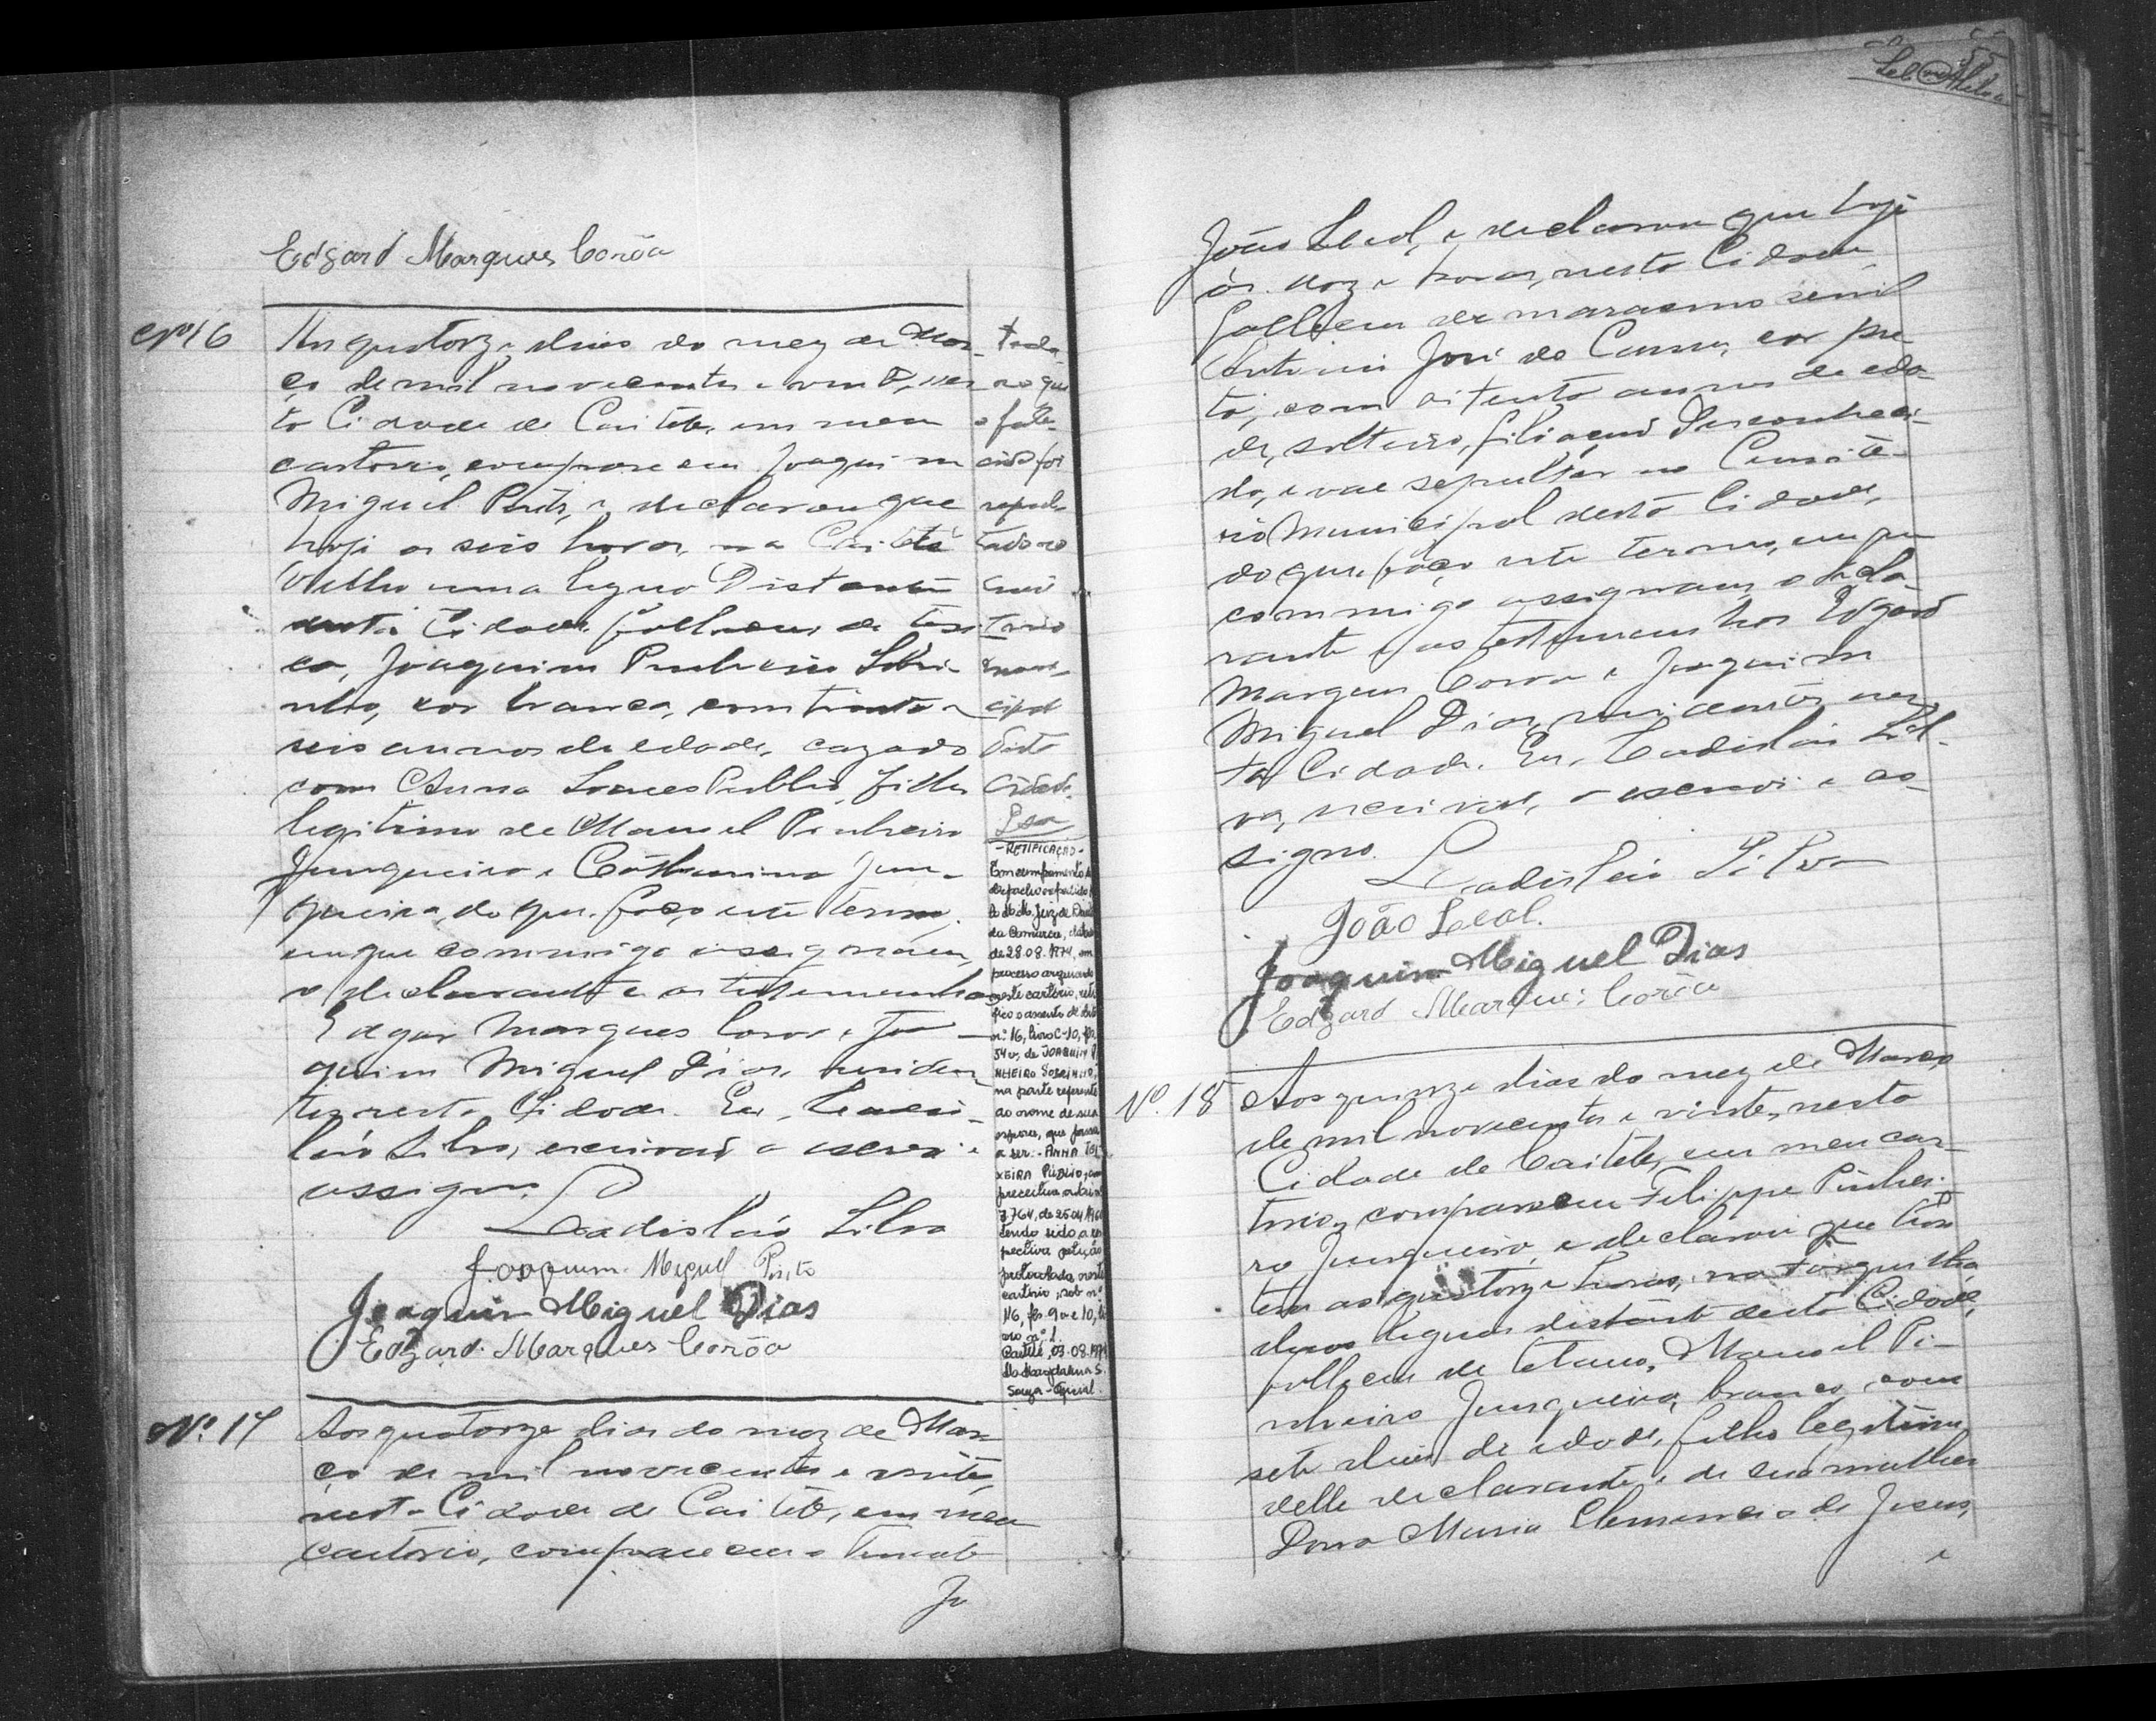 Edgard Marques Corôa
Nº 16
Aos quatorze dias do mez de Mar-
ço de mil novecentos e vinte, nes-
ta Cidade de Caiteté, em meu
cartorio, compareceu Joaquim
Miguel Pinto, e declarou que
hoje as seis horas, na Caiteté
Velho uma legua distante
desta Cidade, falleceu de
Joaquim Pinheiro Sobri-
nho, cor branca, com trinta e
seis annos de edade, cazado
com Anna Publio, filho
legitimo de Manoel Pinheiro
Junqueira e Catharina Jun-
queira, do que faço este termo,
em que commigo assignam,
o declarante e as testemunhas
Edgar Marques Coroa e Joa-
quim Miguel Dias, residen-
tes nesta Cidade. Eu, Ladis-
láo Silva, escrivão o escrevi e
assigno.
Ladisláo Silva
Joaquim Miguel Pinto
Joaquim Miguel Dias
Edgard Marques Corôa
que
o fale-
cido foi
sepul-
tado no
cemi
terio
muni-
cipal
desta
cidade.
- RETIFICAÇÃO -
Em cumprimento
despacho expedido
M. Juiz de Direito
da Comarca, datado
de 28.08.1974, em
processo arquivado
neste cartório, reti
fico o assento de óbito
nº 16, livro C-10, fls
54v, de JOAQUIM PI
NHEIRO SOBRINHO,
na parte referente
ao nome de sua
esposa, que passa
a ser: - ANNA TEI
XEIRA PUBLIO,
preceitua
tendo sido a res
pectiva petição
protocolada neste
cartório, sob nº
116, fls 9v e 10, li
vro nº 1.
Caetité, 03.08.1974
Souza - Oficial.
Nº 17
Aos quatorze dias do mez de Mar-
ço de mil novecentos e vinte,
nesta Cidade de Caiteté, em meu
cartorio, compareceu o Tenente
Jo
João Leal, e declarou que hoje
ás doze horas, nesta Cidade
falleceu de marasmo senil
Antonio José de Cama, cor pre-
ta, com oitenta annos de eda-
de, solteiro, filiação desconheci-
da, e vae sepultar no Cemite-
rio Municipal desta Cidade,
do que faço este termo, em que
commigo assignam o decla-
rante e as testemunhas Edgard
Marques Coroa e Joaquim
Miguel Dias, residentes nes-
ta Cidade. Eu, Ladisláo Sil-
va, escrivão, o escrevi e as-
signo.
Ladisláo Silva
João Leal.
Joaquim Miguel Dias
Edgard Marques Corôa
Nº. 18
Aos quinze dias do mez de Março
de mil novecentos e vinte, nesta
Cidade de Caiteté, em meu car-
torio, compareceu Filippe Pinhei-
ro Junqueira, e declarou que hon-
tem as quatorze horas, na
duas leguas distante desta Cidade,
falleceu de tetano, Manoel Pi-
nheiro Junqueira, branco, com
sete dias de edade, filho legitimo
delle declarante, e de sua mulher
Dona Maria Clemencia de Jesus,
e